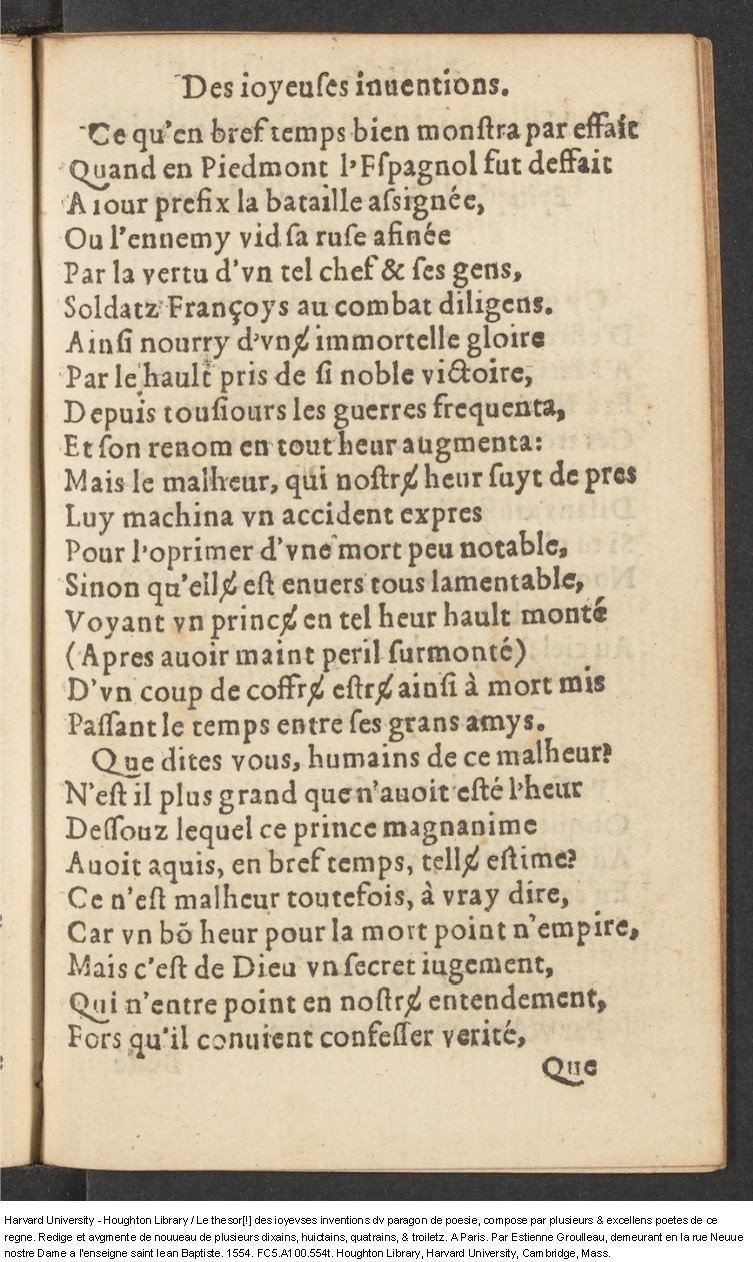 Des ioyeuſes inuentions.
Ce qu'en bref temps bien monſtra par effait
Quand en Piedmont l'Eſpagnol fut deffait
A iour prefix la bataille aſsignée,
Ou l'ennemy vid ſa ruſe afinée
Par la vertu d'vn tel chef & ſes gens,
Soldatz Françoys au combat diligens.
Ainſi nourry d'vnɇ immortelle gloire
Par le hault pris de ſi noble victoire,
Depuis touſiours les guerres frequenta,
Et ſon renom en tout heur augmenta:
Mais le malheur, qui noſtrɇ heur ſuyt de pres
Luy machina vn accident expres
Pour l'oprimer d'vne mort peu notable,
Sinon qu'ellɇ eſt enuers tous lamentable,
Voyant vn princɇ en tel heur hault monté
(Apres auoir maint peril ſurmonté)
D'vn coup de coffrɇ eſtrɇ ainſi à mort mis
Paſſant le temps entre ſes grans amys.
Que dites vous, humains de ce malheur?
N'eſt il plus grand que n'auoit eſté l'heur
Deſſouz lequel ce prince magnanime
Auoit aquis, en bref temps, tellɇ eſtime?
Ce n'eſt malheur toutefois, à vray dire,
Car vn bõ heur pour la mort point n'empire,
Mais c'eſt de Dieu vn ſecret iugement,
Qui n'entre point en noſtrɇ entendement,
Fors qu'il conuient confeſſer verité,
Que
Harvard University - Houghton Library / Le thesor[!] des ioyevses inventions dv paragon de poesie, compose par plusieurs & excellens poetes de ce
regne. Redige et avgmente de nouueau de plusieurs dixains, huictains, quatrains, & troiletz. A Paris. Par Estienne Groulleau, demeurant en la rue Neuue
nostre Dame a l'enseigne saint Iean Baptiste. 1554. FC5.A100.554t. Houghton Library, Harvard University, Cambridge, Mass.